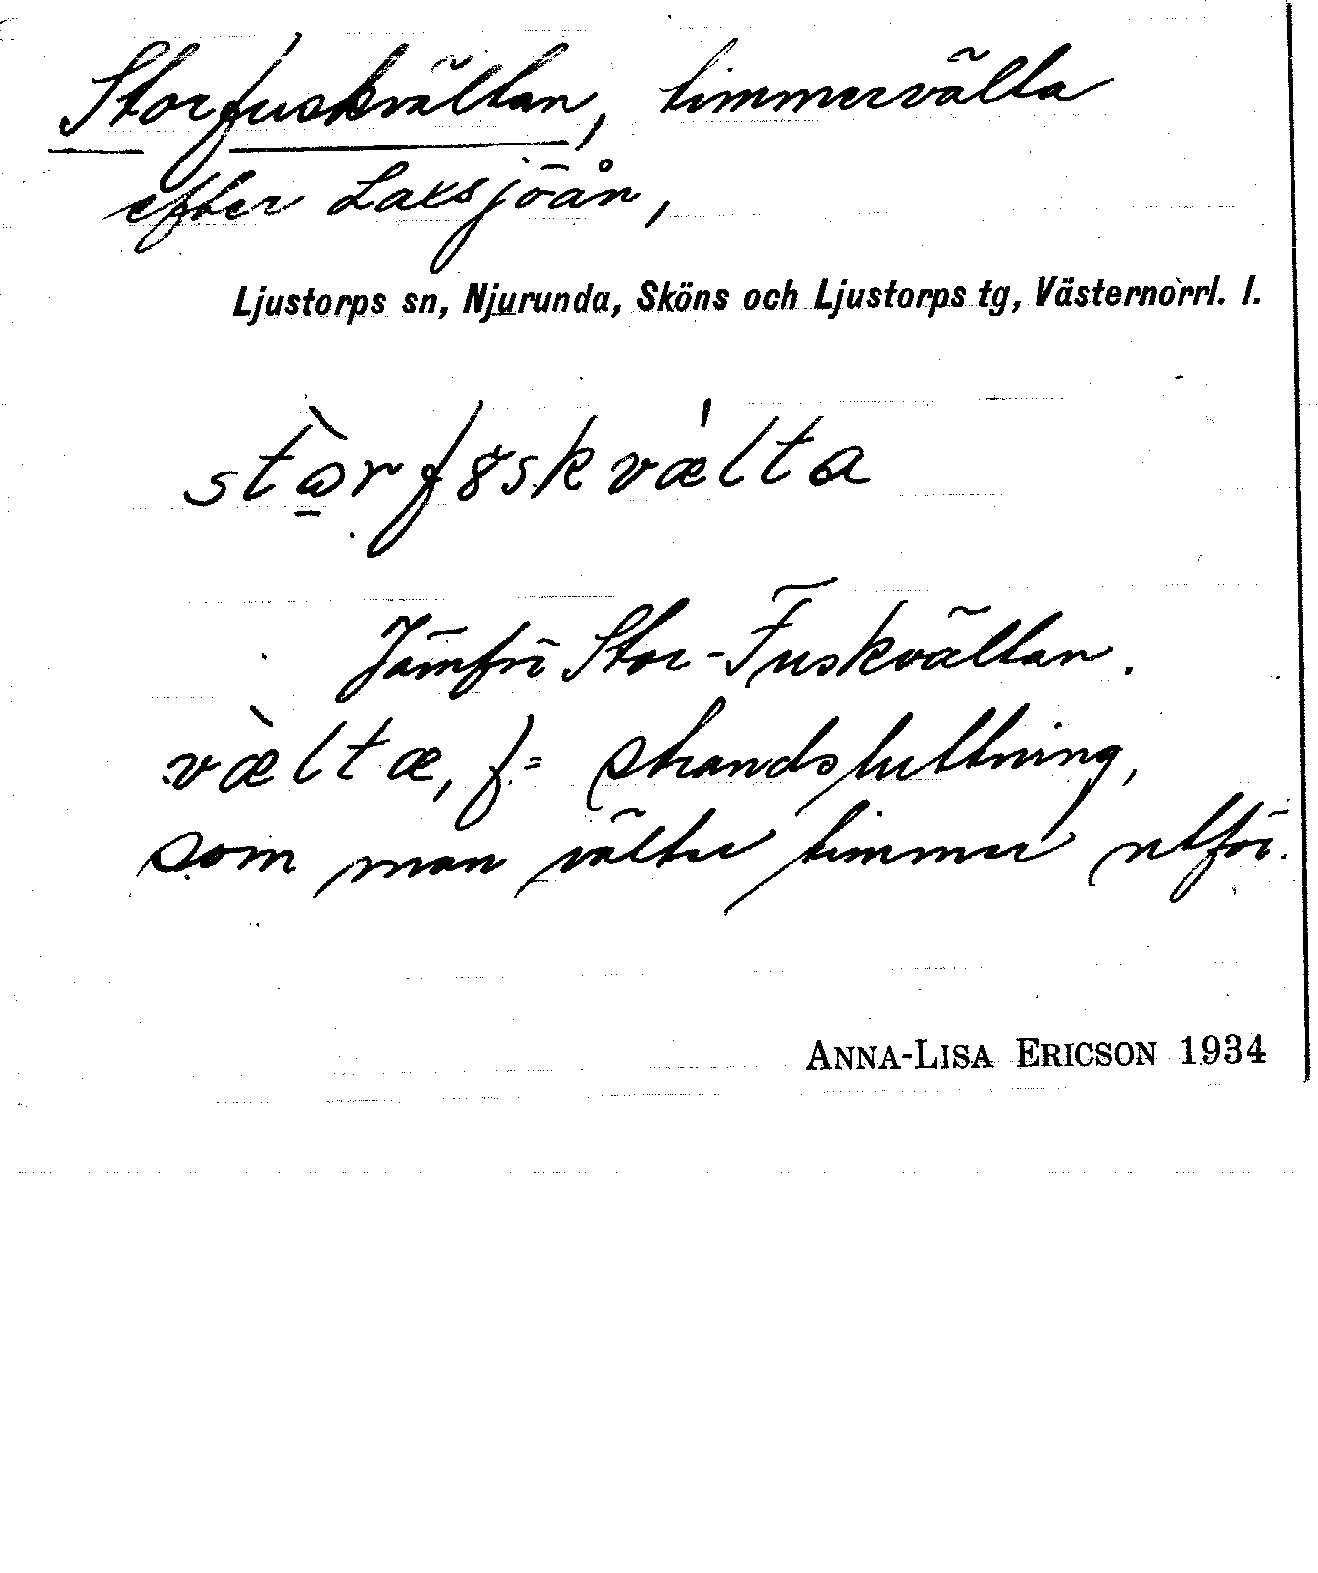 Storfuskvältan, timmervälta
efter Laxsjöån,
Ljustorps sn, Njurunda, Sköns och Ljustorps tg, Västernorrl. l.
stɷ̀rfȣskvæ̍lta
Jämför Stor-Fuskvältan.
væ̀ltæ, f = strandsluttning,
som man välter timmer utför.
ANNA-LISA ERICSON 1934